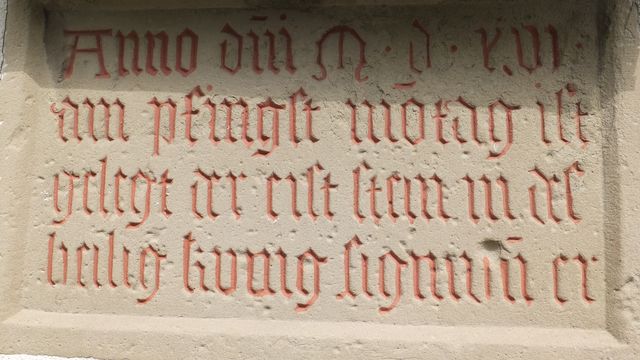 Anno dn̄i M · d̄ · xvi ·
am pfingst mōtag ist
gelegt der erst stein in des
heilig kunig sigmūd er